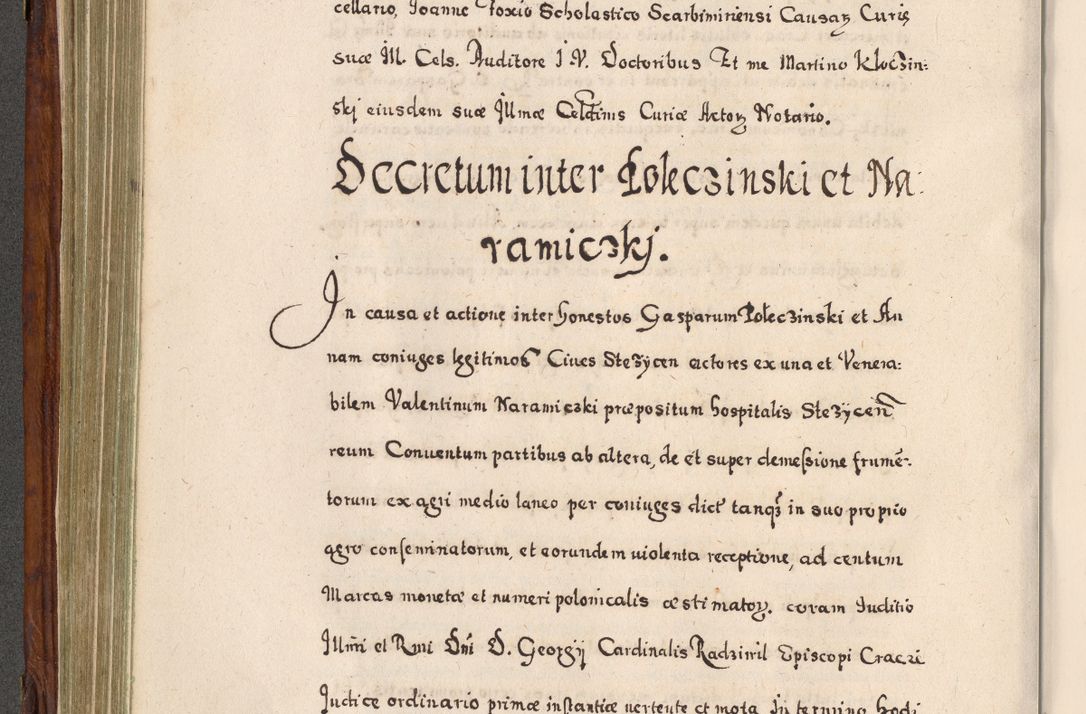 cellario, Joanne Foxio Scholastico Scarbimiriensi Causaꝝ Curię
suæ Ill. Cels. Auditore I. V. Doctoribus Et me Martino Kloczin:
skj eiusdem suæ Illmæ Celtnis Curiæ Actoꝝ Notario.
Decretum inter Poleczinski et Na:
ramiczkj.
In causa et actione inter honestos Gasparum Poleczinski et An
nam coniuges legitimos Ciues Stezycen actores ex una et Venera:
bilem Valentinum Naramiczki præpositum hospitalis Stezycen
reum Conuentum partibus ab altera, de et super demessione frumē:
torum ex agri medio laneo per coniuges dict tanqȝ in suo proprio
agro conseminatorum, et eorundem uiolenta receptione, ad centum
Marcas monetæ et numeri polonicalis æstimatoꝝ. coram Juditio
Illmi et Rmi Dni D. Georgij Cardinalis Radziwil Episcopi Craczi
Judice ordinario primæ instantiæ uertente et mota. In termino hodi